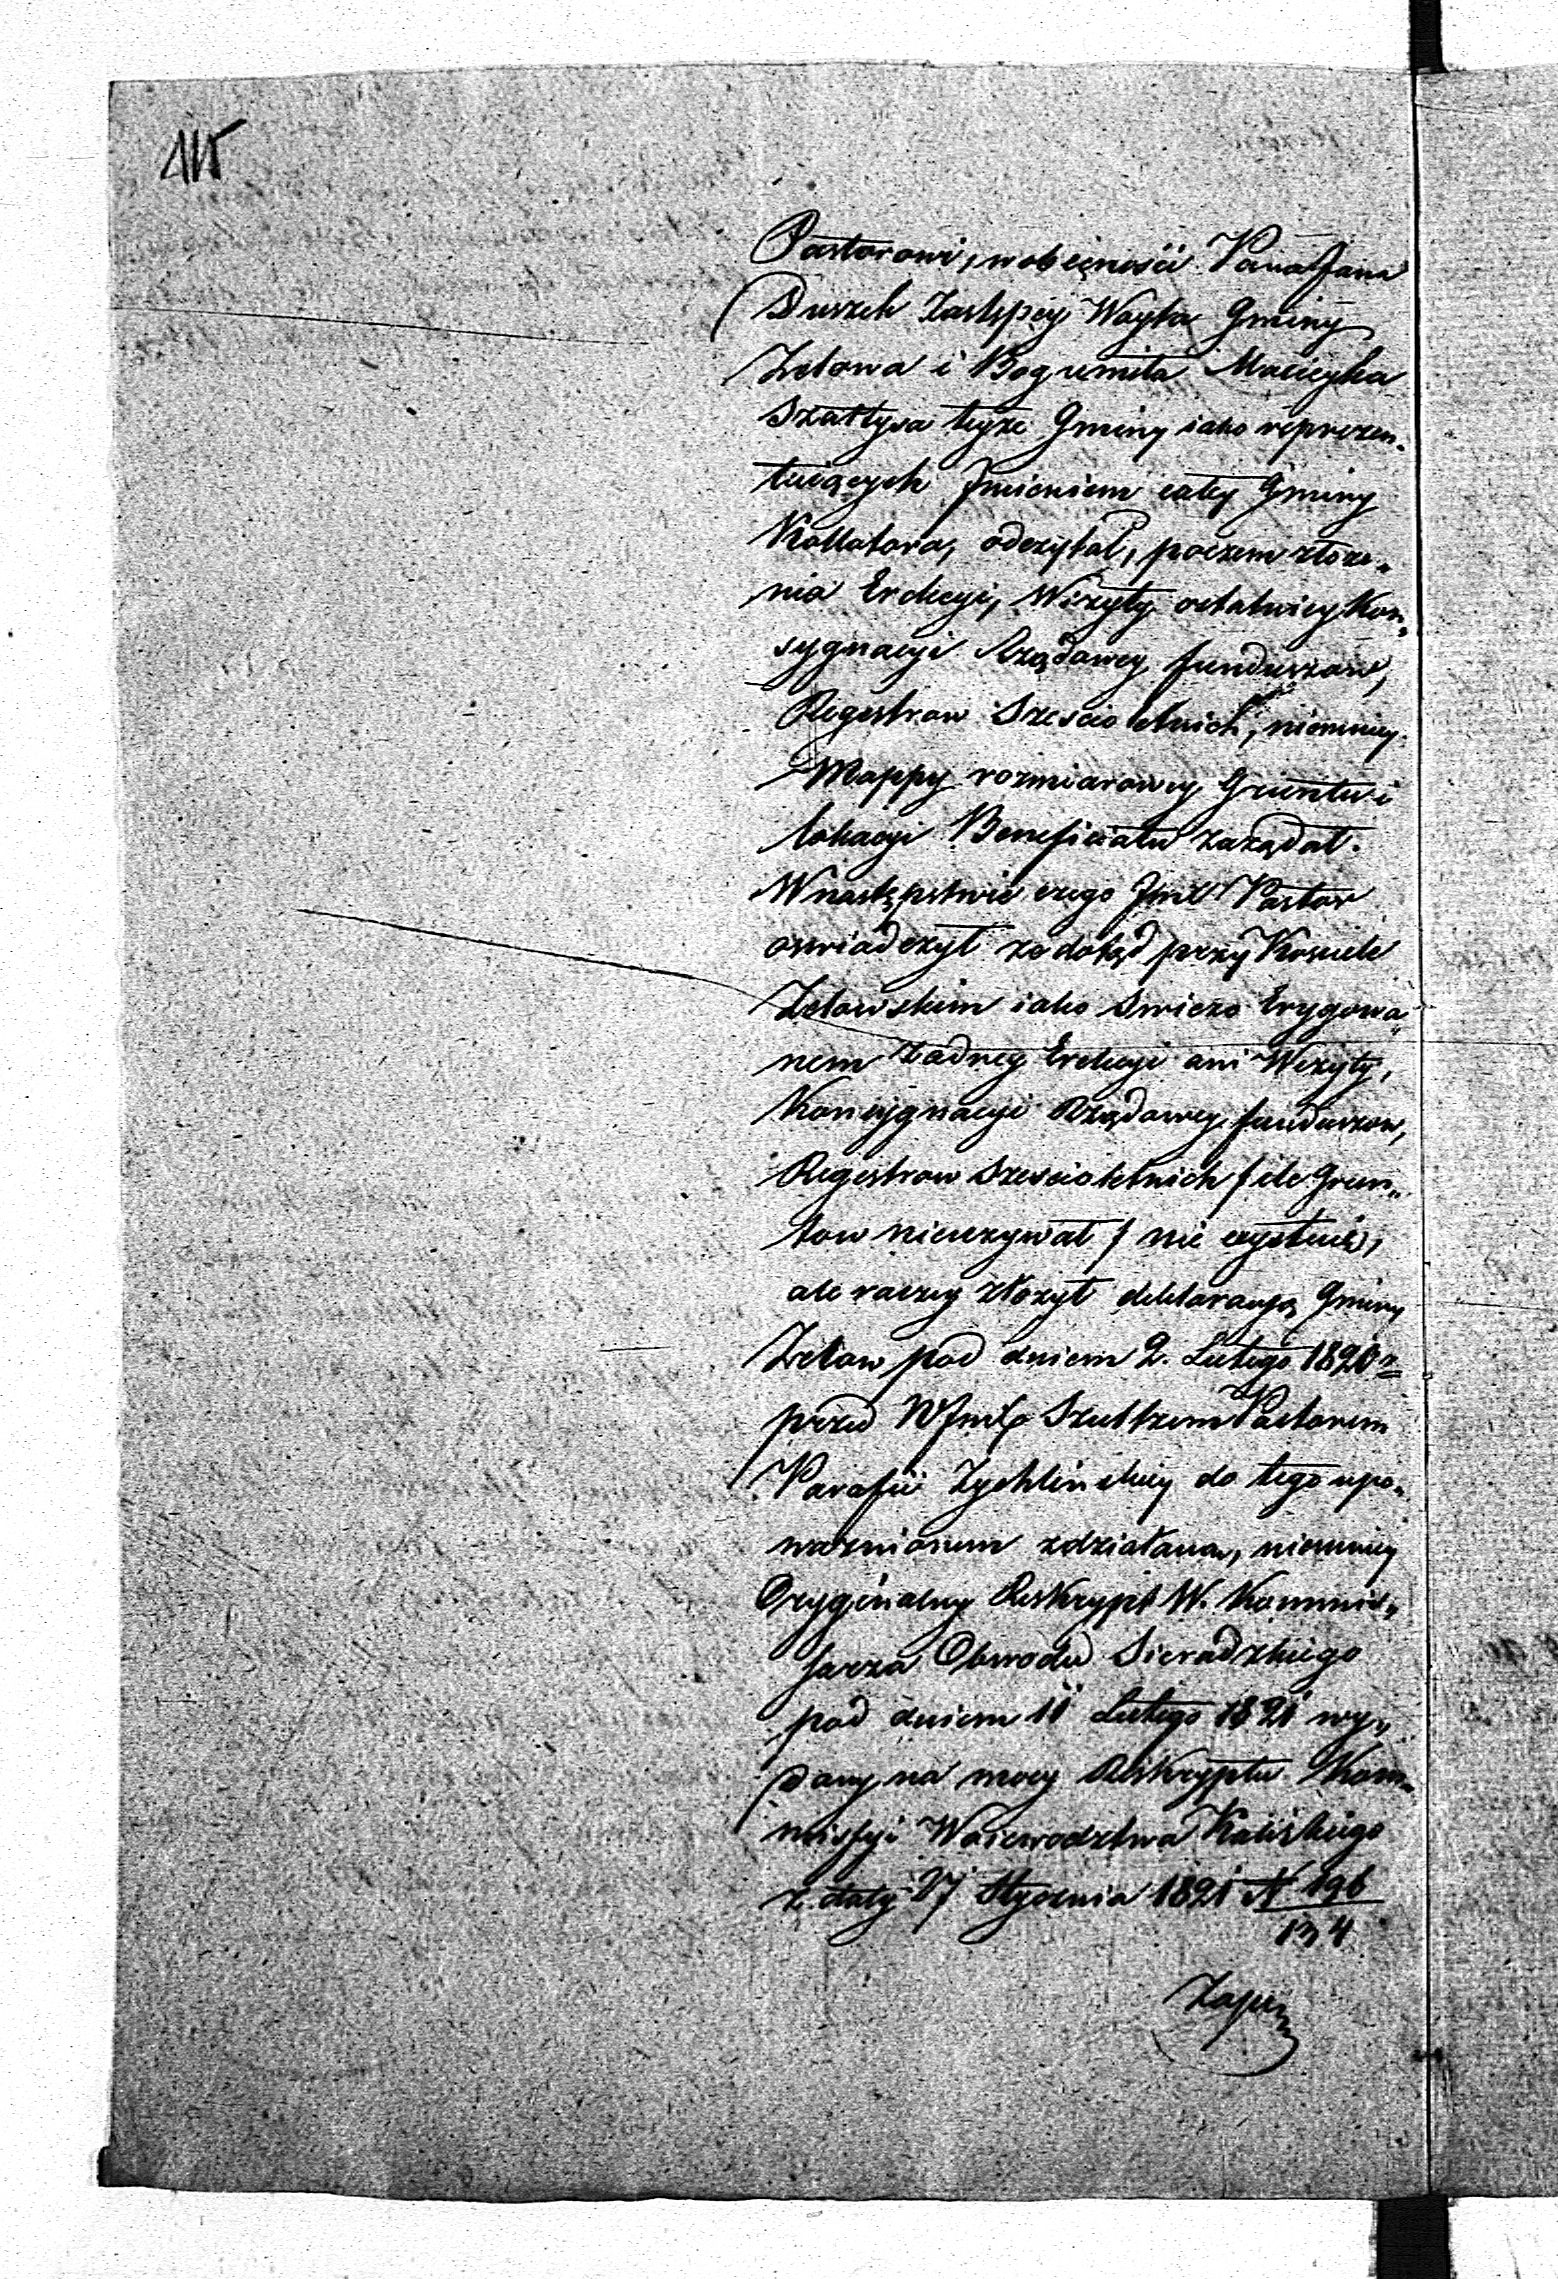 115
Pastorowi, w obecności Pana Jana
Duszek Zastępcy Woyta Gminy
Zelowa i Bogumiła Macieyka
Szałtysa teyże Gminy iako reprezen„
tuiących Imieniem całey Gminy
Kollatora, odczytał, poczem złoże„
nia Erekcyi, Wizyty ostatniey Kon„
sygnacyi Rządowey funduszow,
Regestrow Szescio letnich, niemniey
Mappy rozmiarowey Gruntu i
lokacyi Beneficiatu zażądał.
W następstwie czego Pastor
oswiadczył ze dotąd przy Kosciele
Zelowskim iako swiezo Erygowa„
nem żadney Erekcyi ani Wizyty,
Konsygnacyi Rządowey funduszow,
Regestrow szescioletnich / ile Grun„
tow nieuzywał / nie
ale raczey złożył deklaracyą Gminy
Zelow pod dniem 2. Lutego 1820 r
przed Szultzem Pastorem
Parafii Zychlinskiey do tego upo„
ważnionem zdziałaną, niemniey
Oryginalny Reskrypt W. Kommis„
sarza Obwodu Sieradzkiego
pod dniem 11 Lutego 1821 wy„
dany na mocy Reskryptu Kom„
missyi Woiewodztwa Kaliskiego
z daty 27 Stycznia 1821 N 196
134